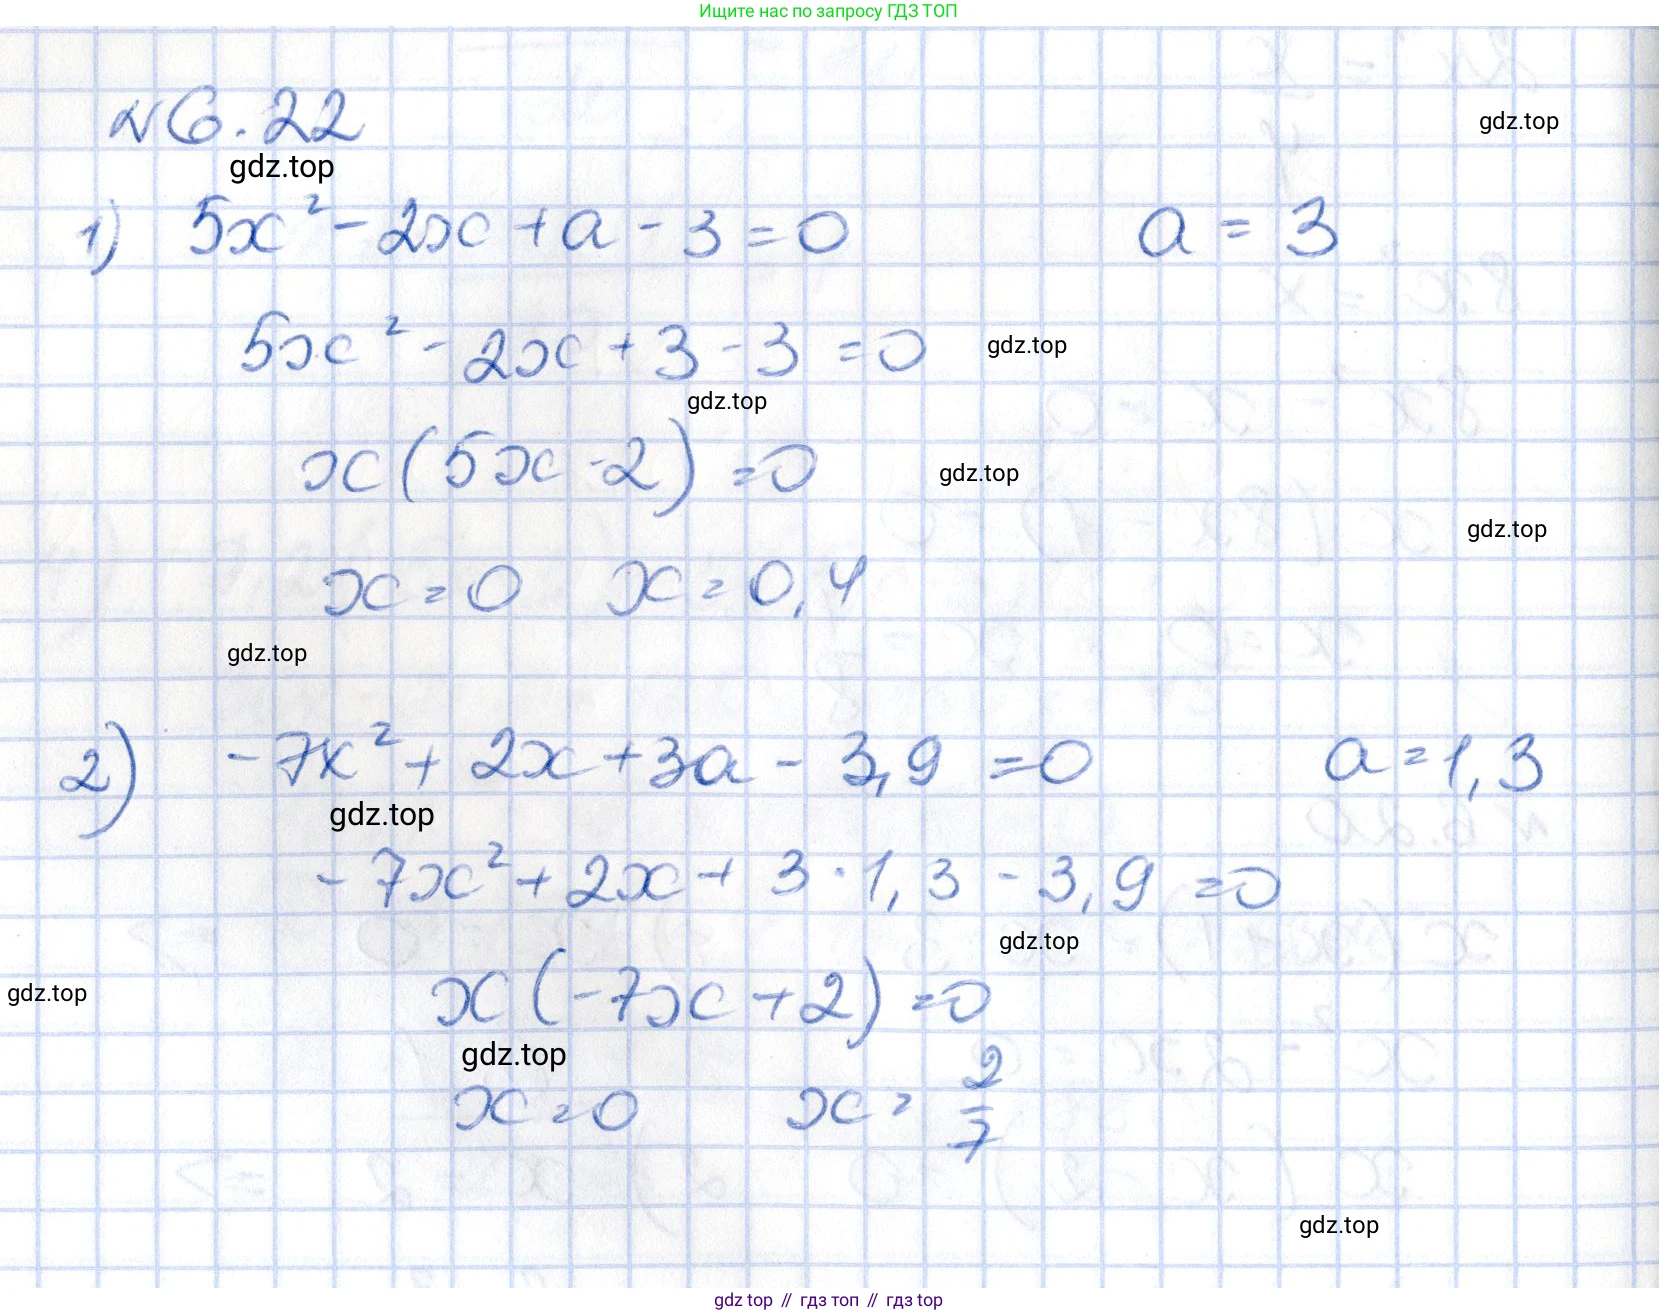 Ищите нас по запросу ГДЗ ТОП
№6.22
gdz.top
gdz.top
1) 5x² - 2x + a - 3 = 0 a = 3
5x² - 2x + 3 - 3 = 0
gdz.top
gdz.top
x(5x - 2) = 0
gdz.top
gdz.top
x = 0 x = 0,4
gdz.top
2) -7x² + 2x + 3a - 3,9 = 0 a = 1,3
gdz.top
-7x² + 2x + 3 · 1,3 - 3,9 = 0
gdz.top
gdz.top
x(-7x + 2) = 0
gdz.top
x = 0 x = 2/7
gdz.top
gdz top // гдз топ // гдз top